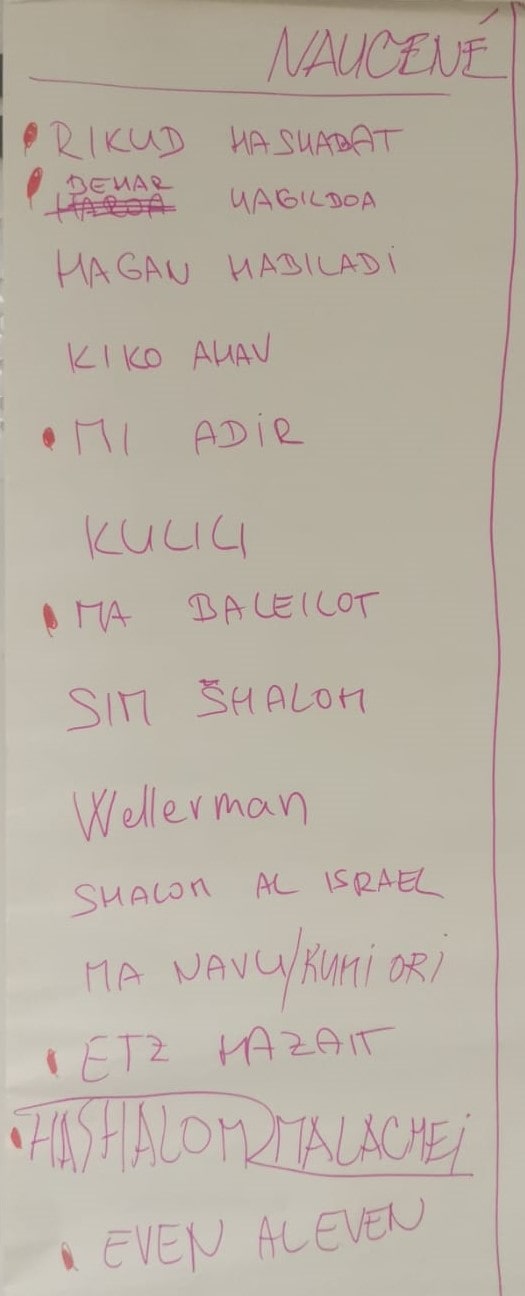 NAUCENÉ
RIKUD HASHABAT
BEHAR
HAROA HAGILBOA
HAGAN HABILADI
KIKO AHAV
MI ADIR
KULILI
MA BALEILOT
SIM ŠHALOM
Wellerman
SHALOM AL ISRAEL
MA NAVU/KUMI ORI
ETZ HAZAIT
HASHALOM MALACHEI
EVEN AL EVEN